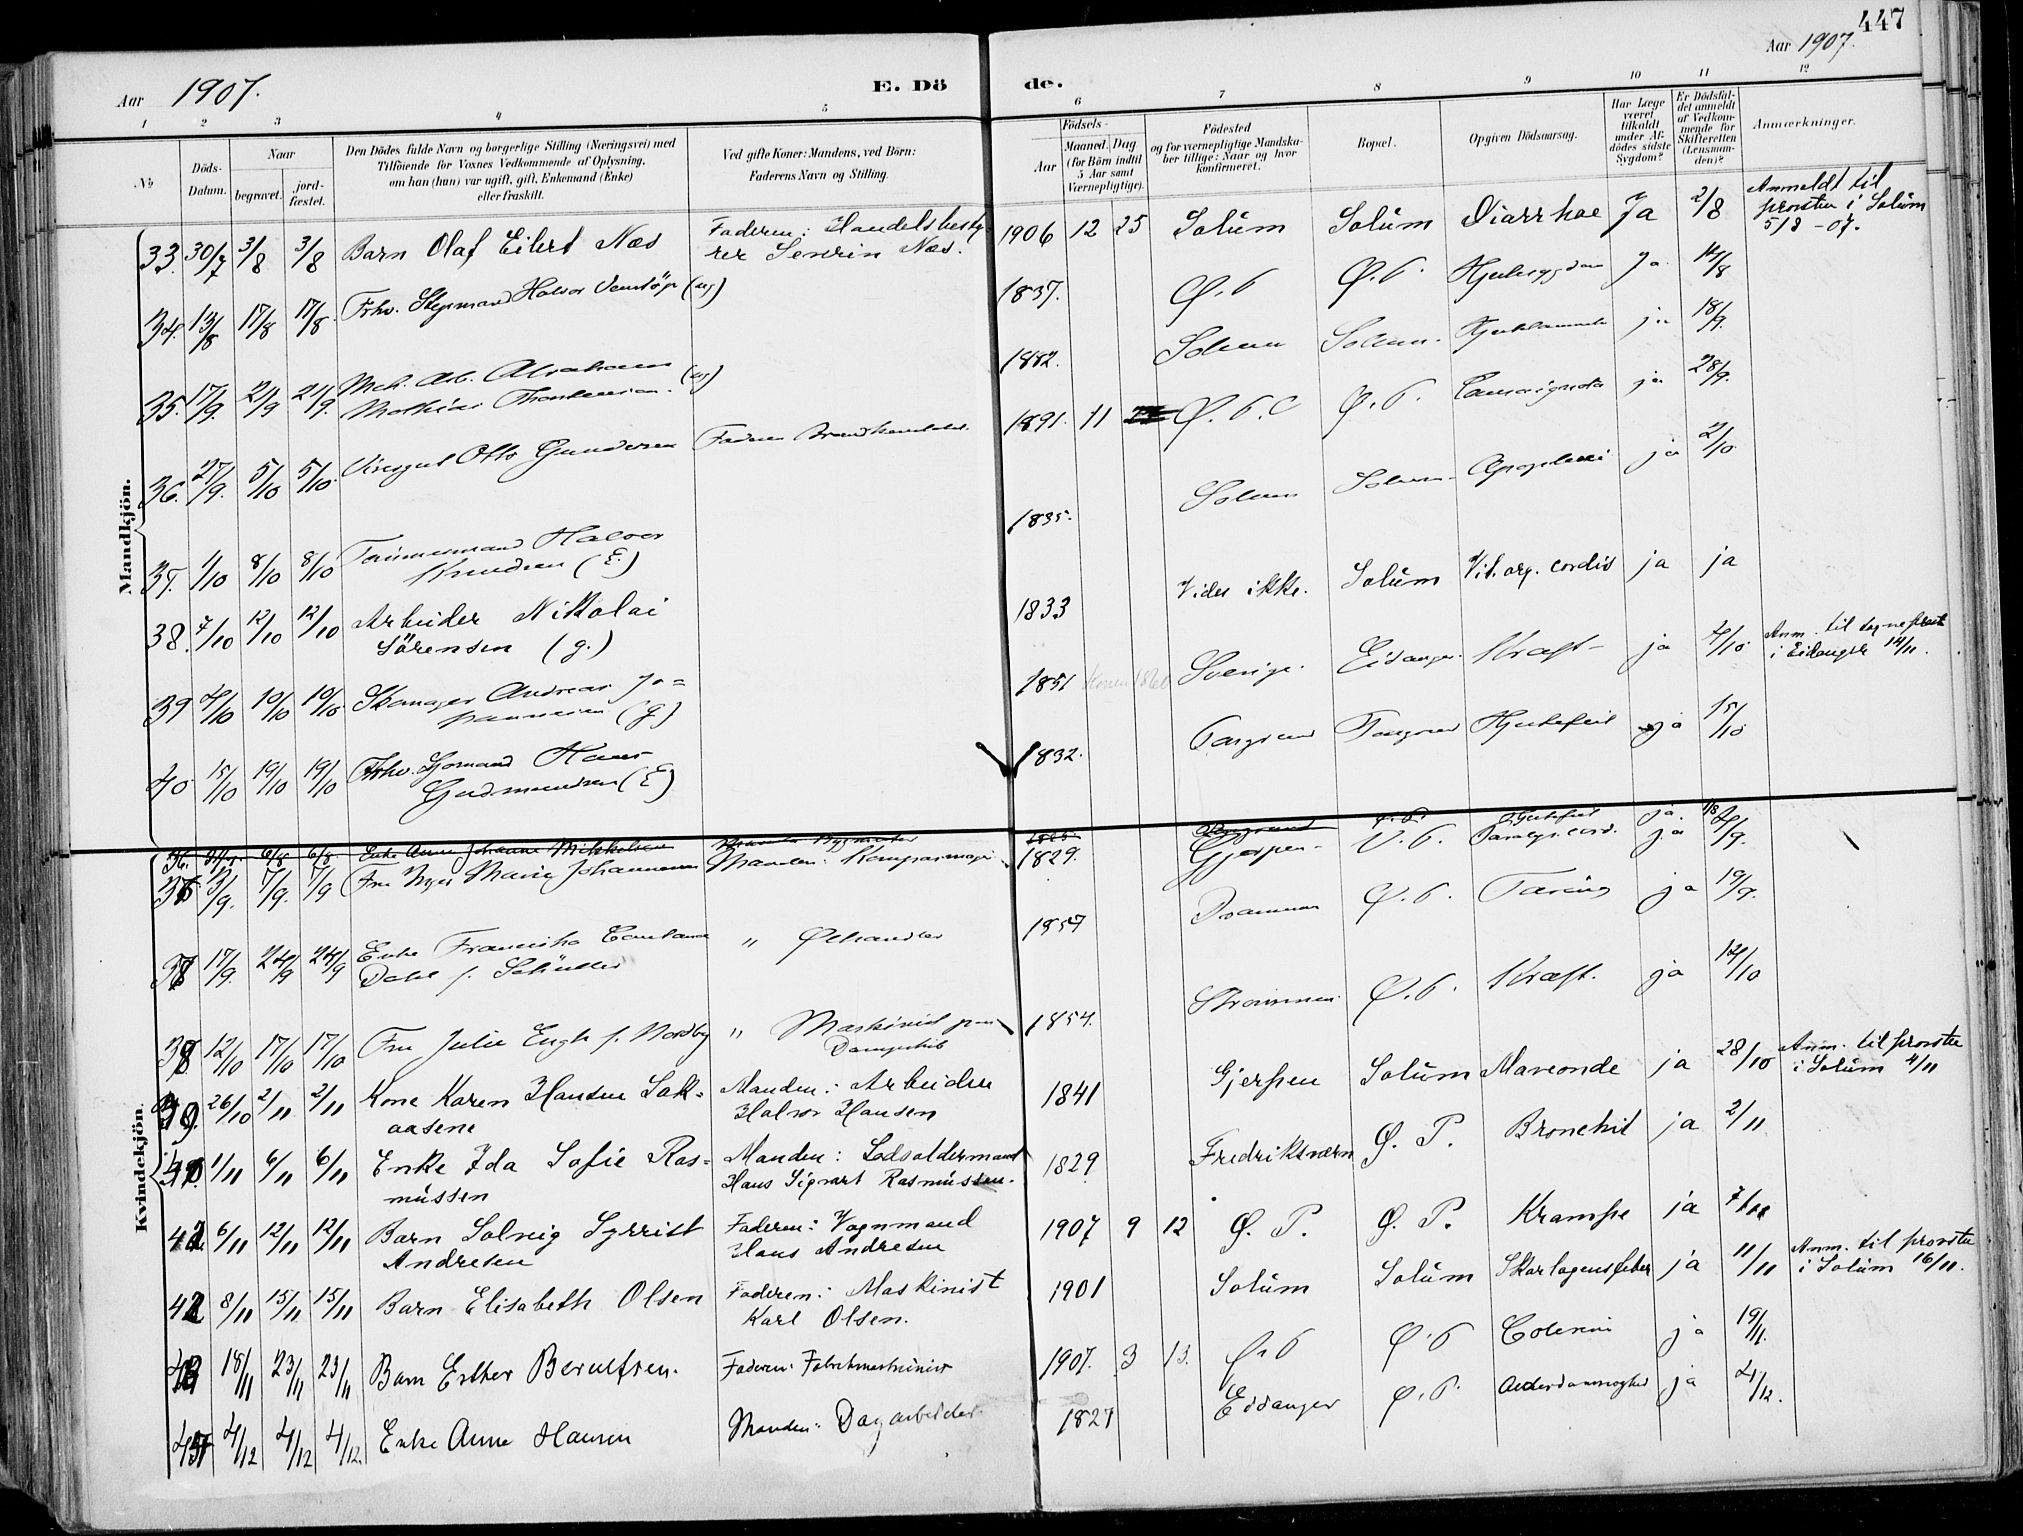 447
Aar 1907.
E. Dö
de.
Aar 1907.
1 2 3 4 5 6 7 8 9 10 11 12
No
Döds-Datum.
Naar
begravet.
jord-fæstet.
Den Dödes fulde Navn og borgerlige Stilling (Næringsvei) med
Tilföiende for Voxnes Vedkommende af Oplysning,
om han (hun) var ugift, gift, Enkemand (Enke)
eller fraskilt.
Ved gifte Koner: Mandens, ved Börn:
Faderens Navn og Stilling.
Födsels-
Aar
Maaned. Dag
(for Börn indtil
5 Aar samt
Værnepligtige).
Födested
og for værnepligtige Mandska-
ber tillige: Naar og hvor
konfirmeret.
Bopæl.
Opgiven Dödsaarsag.
Har Læge
været
tilkaldt
under Af-
dödes sidste
Sygdom?
Er Dödsfal-
det anmeldt
af Vedkom-
mende for
Skifteretten
(Lensman-
den)?
Anmærkninger.
Mandkjön.
33. 30/7 3/8 3/8 Barn Olaf Eilert Næs Faderen: Handelsbesty- 1906 12 25 Solum Solum Diarrhoe Ja 2/8 Anmeldt til
rer Severin Næs. provsten i Solum
5/8 -07.
34. 13/8 17/8 17/8 Frhv. Halvor (ug) 1837. Ø.P Ø.P. Hjertesygdom Ja 14/8
35. 17/9. 21/9 21/9. Mek. Arb. Abraham (ug) 1882. Solum Solum. ja 18/9.
Mathias
36. 27/9. 5/10 5/10. Otto Gundersen Faderen 1891. 11 Ø.P. Ø.P. ja 28/9.
37. 1/10 8/10 8/10 Tømmermand Halvor 1835. Solum Solum Apoplexi ja 2/10
Knudsen (E.)
38. 7/10 12/10 12/10 Arbeider Nikolai 1833 Vides ikke. Solum Vit. org. cordis ja ja
Sörensen (g.)
39 4/10 10/10 10/10 Skomager Andreas Jo= 1851 Sverige. Eidanger. Kræft ja 4/10 Anm. til sogneprest
hannesen (g) i Eidanger 14/11.
40 15/10 19/10 19/10 Frhv. Sjømand Hans 1832. Porsgrund Porsgrund Hjertefeil ja 15/10
Gudmundsen (E)
Kvindekjön.
Enke Anne Johanne Mikkelsen
36 3/9. 7/9. 7/9 Fru Marie Johannesen Manden: 1829. Gjerpen Ø.P. Paralys. cord. ja 4/9.
37 17/9. 24/9 24/9 Enke Franciska " 1857 Drammen Ø.P. ja 19/9.
Dahl f.
38 12/10 17/10 17/10 Fru Julie Engh f. Nordby " Maskinist paa 1854. Strømmen Ø.P. Kræft. ja 12/10
Dampskib
39. 26/10 2/11 2/11 Kone Karen Hansen Sak- Manden: Arbeider 1841 Gjerpen Solum Maveonde ja 28/10 Anm. til provsten
aasene Halvor Hansen i Solum 4/11
40 1/11 6/11 6/11 Enke Ida Sofie Ras= Manden: Lodsoldermand 1829 Fredriksværn Ø. P. Bronchit ja 2/11
mussen Hans Sigvart Rasmussen.
41 6/11 12/11 12/11 Barn Solveig Syrrist Faderen: Vognmand 1907 9 12 Ø. P. Ø. P. Krampe ja 7/11
Andresen Hans Andresen
42 8/11 15/11 15/11 Barn Elisabeth Olsen Faderen: Maskinist 1901 Solum Solum Skarlagensfeber ja 11/11 Anm. til provsten
Karl Olsen. i Solum 16/11.
43 18/11 23/11 23/11 Barn Esther Berntsen. Faderen: Fabrikmaskinist 1907. 3 13. Ø.P Ø.P ja 19/11.
4/12 4/12 4/12. Enke Anne Hansen Manden: Dagarbeider 1827 Eidanger Ø.P. Alderdomssvaghed ja 4/12.